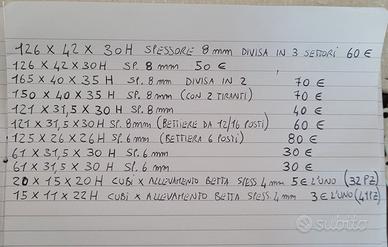 126 X 42 X 30H SPESSORE 8mm DIVISA IN 3 SETTORI 60 €
126 X 42 X 30H SP. 8mm 50 €
165 X 40 X 35H SP. 8mm DIVISA IN 2 70 €
150 X 40 X 35H SP. 8mm (CON 2 TIRANTI) 70 €
121 X 31,5 X 30H SP. 8mm 40 €
121 X 31,5 X 30H SP. 8mm (BETTIERE DA 12/16 POSTI) 60 €
125 X 26 X 26H SP. 6mm (BETTIERA 6 POSTI) 80 €
61 X 31,5 X 30H SP. 6mm 30 €
61 X 31,5 X 30H SP. 6mm 30 €
20 X 15 X 20H CUBI X ALLEVAMENTO BETTA SPESS. 4mm 5€ L'UNO (32 PZ)
15 X 11 X 22H CUBI X ALLEVAMENTO BETTA SPESS. 4mm 3€ L'UNO (41 PZ)
subito